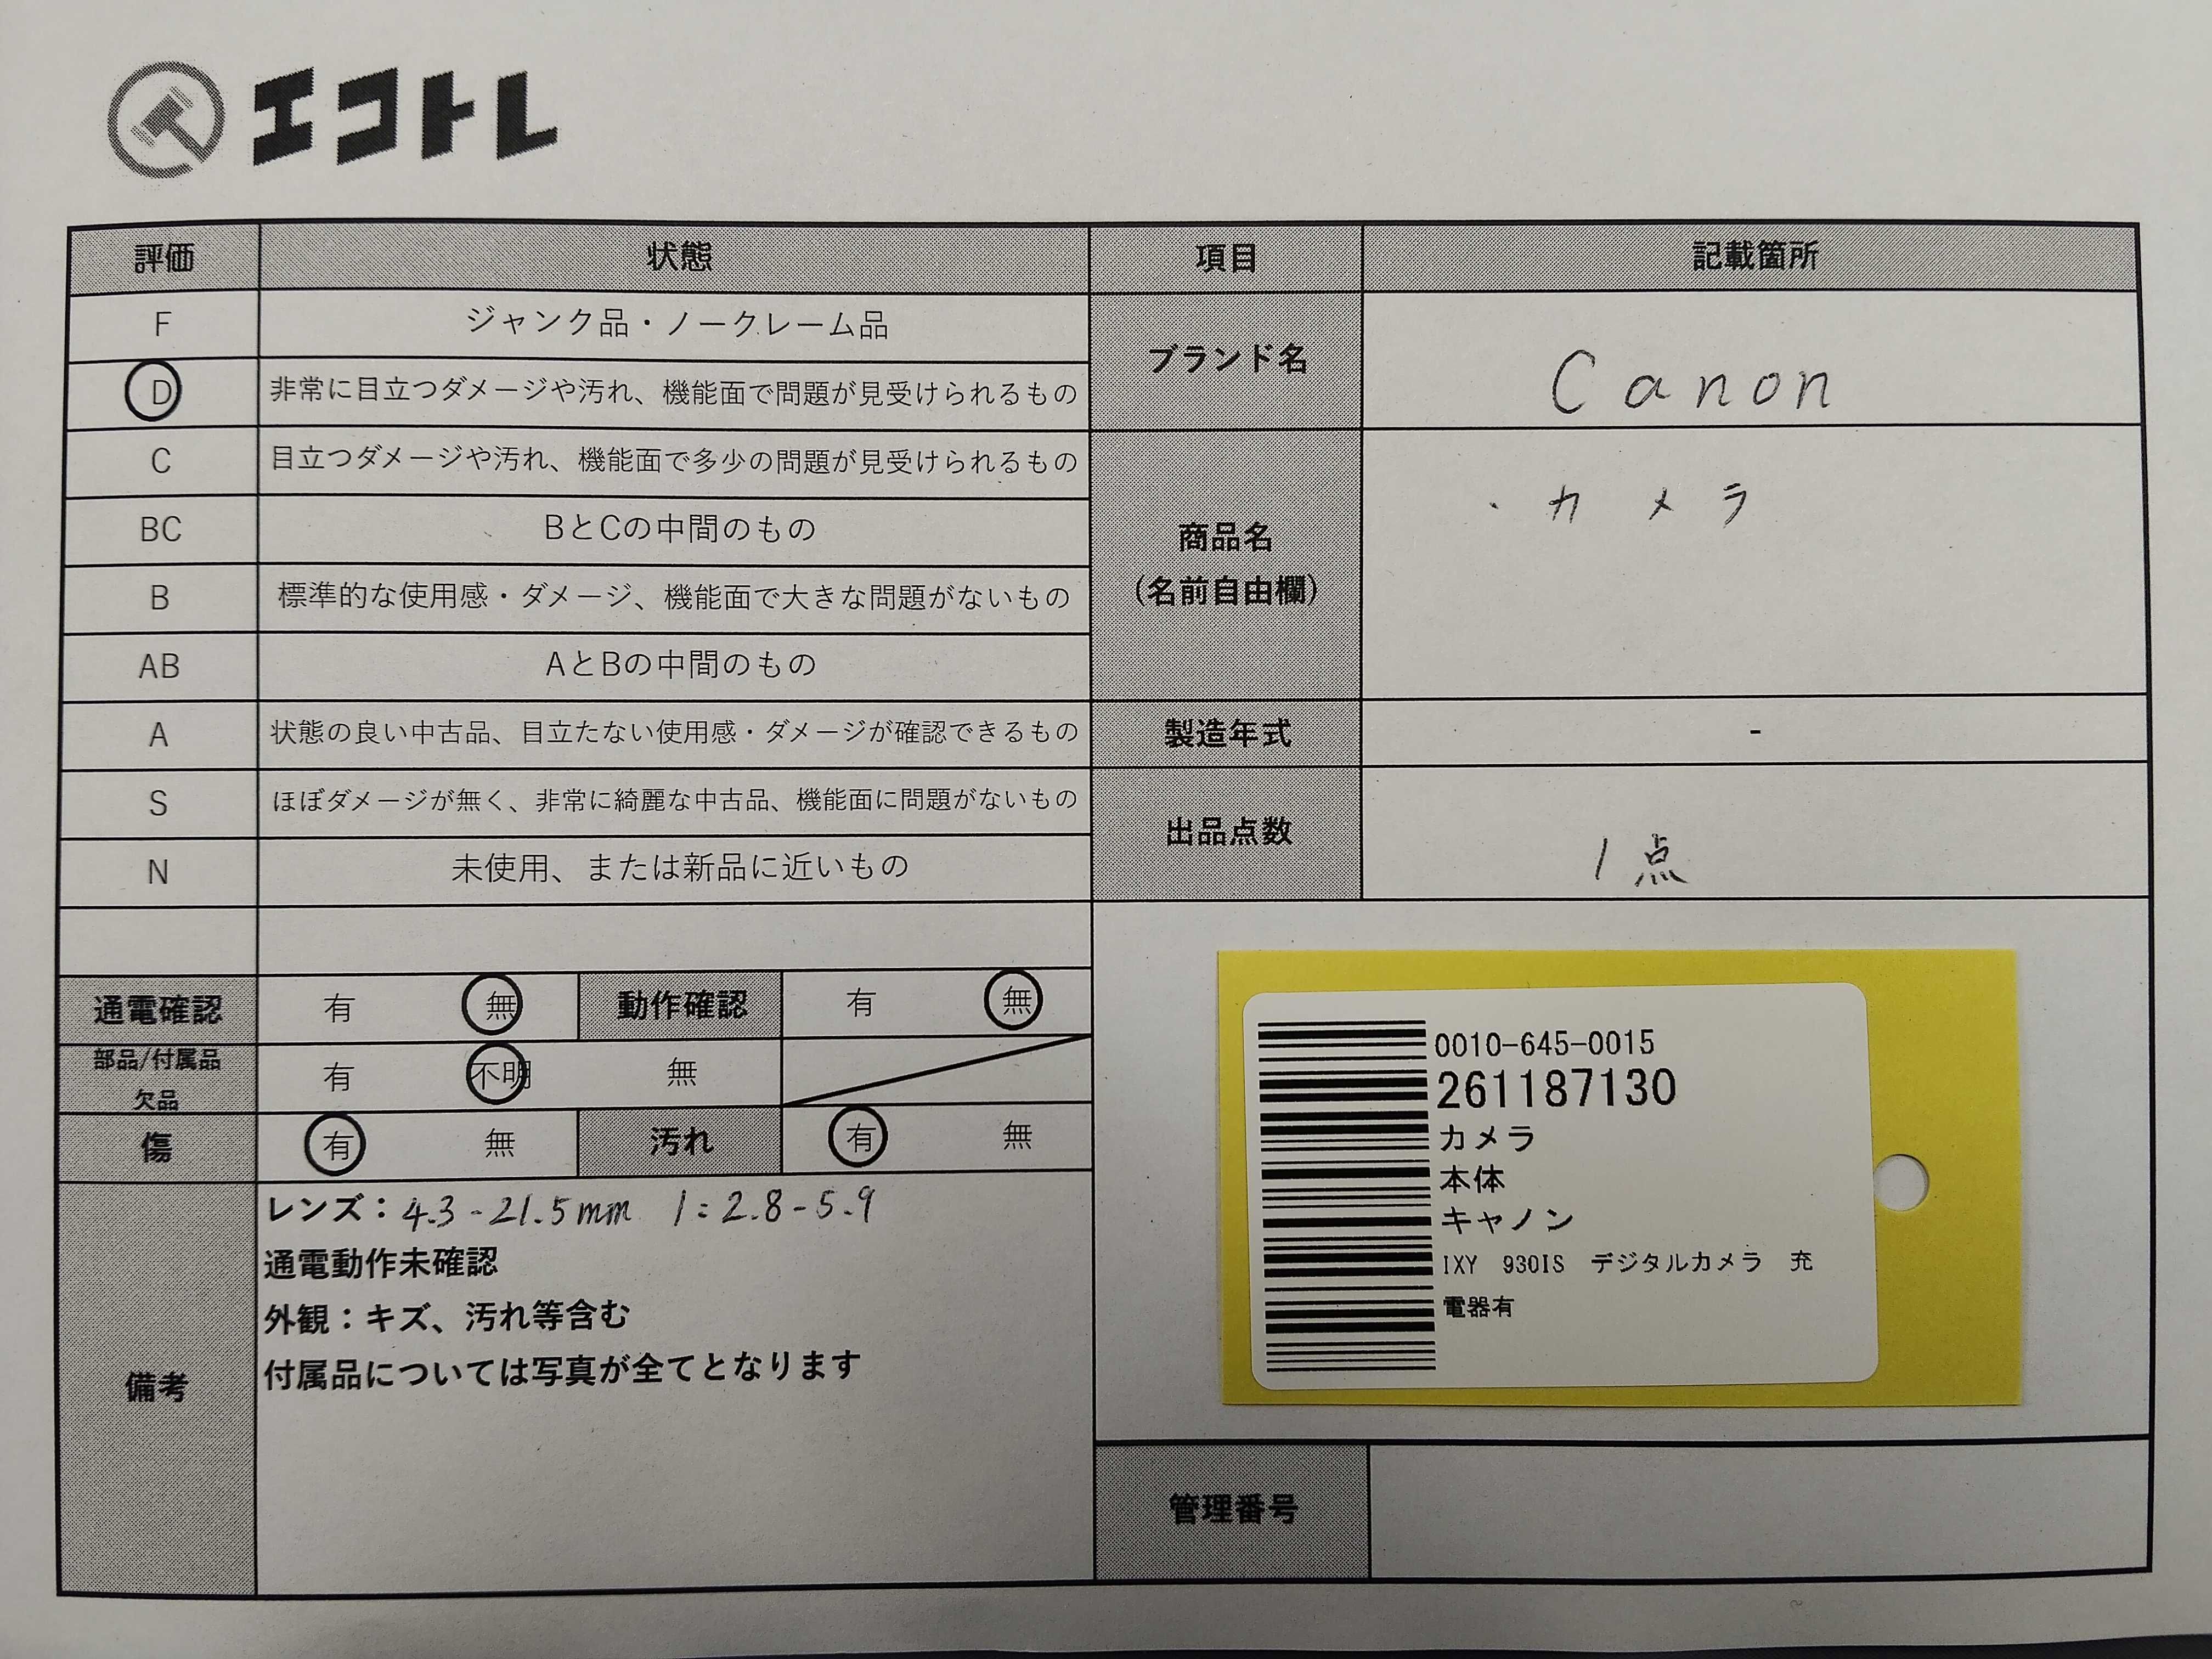 エコトレ
評価 状態 項目 記載箇所
F ジャンク品・ノークレーム品
D 非常に目立つダメージや汚れ、機能面で問題が見受けられるもの
C 目立つダメージや汚れ、機能面で多少の問題が見受けられるもの
BC BとCの中間のもの
B 標準的な使用感・ダメージ、機能面で大きな問題がないもの
AB AとBの中間のもの
A 状態の良い中古品、目立たない使用感・ダメージが確認できるもの
S ほぼダメージが無く、非常に綺麗な中古品、機能面に問題がないもの
N 未使用、または新品に近いもの
ブランド名 Canon
商品名
(名前自由欄)
・カメラ
製造年式 -
出品点数 1点
通電確認 有 無 動作確認 有 無
部品/付属品
欠品
有 不明 無
傷 有 無 汚れ 有 無
備考
レンズ：4.3-21.5mm 1:2.8-5.9
通電動作未確認
外観：キズ、汚れ等含む
付属品については写真が全てとなります
0010-645-0015
261187130
カメラ
本体
キャノン
IXY 930IS デジタルカメラ 充
電器有
管理番号